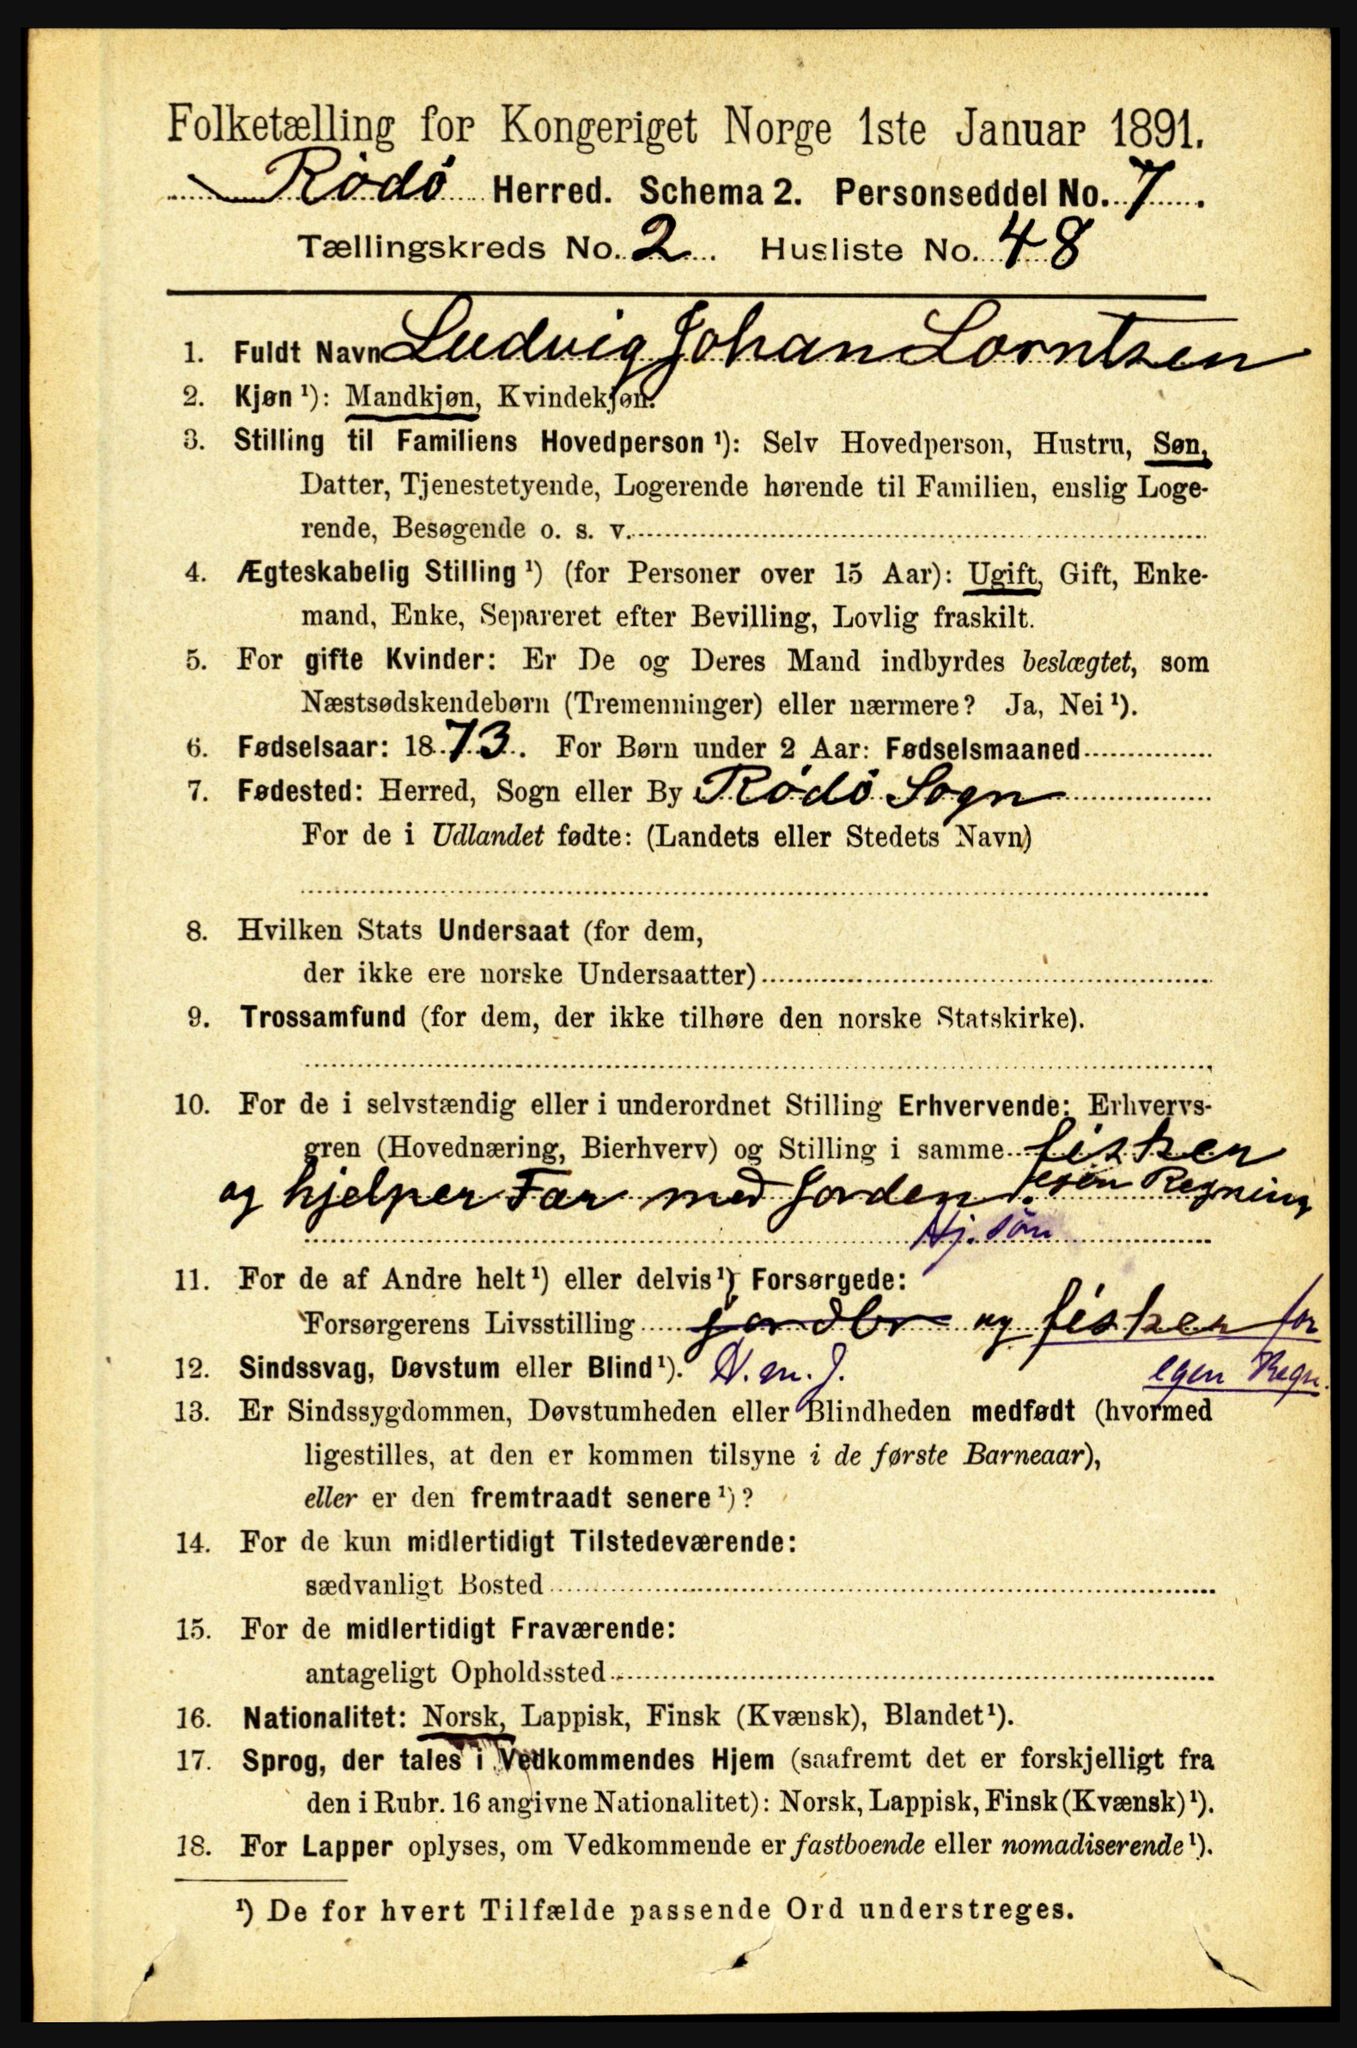 Folketælling for Kongeriget Norge 1ste Januar 1891.
Rödö Herred. Schema 2. Personseddel No. 7.
Tællingskreds No. 2. Husliste No. 48
1. Fuldt Navn Ludvig Johan Lorntsen
2. Kjøn¹): Mandkjøn, Kvindekjøn.
3. Stilling til Familiens Hovedperson¹): Selv Hovedperson, Hustru, Søn,
Datter, Tjenestetyende, Logerende hørende til Familien, enslig Loge-
rende, Besøgende o. s. v.
4. Ægteskabelig Stilling¹) (for Personer over 15 Aar): Ugift, Gift, Enke-
mand, Enke, Separeret efter Bevilling, Lovlig fraskilt.
5. For gifte Kvinder: Er De og Deres Mand indbyrdes beslægtet, som
Næstsødskendebørn (Tremenninger) eller nærmere? Ja, Nei¹).
6. Fødselsaar: 1873. For Børn under 2 Aar: Fødselsmaaned
7. Fødested: Herred, Sogn eller By Rödö Sogn
For de i Udlandet fødte: (Landets eller Stedets Navn)
8. Hvilken Stats Undersaat (for dem,
der ikke ere norske Undersaatter)
9. Trossamfund (for dem, der ikke tilhøre den norske Statskirke).
10. For de i selvstændig eller i underordnet Stilling Erhvervende: Erhvervs-
gren (Hovednæring, Bierhverv) og Stilling i samme fisker
og hjelper Far med Jorden. egen Regning
Hj. søn
11. For de af Andre helt¹) eller delvis¹) Forsørgede:
Forsørgerens Livsstilling jordbr og fisker for
12. Sindssvag, Døvstum eller Blind¹). egen Regn.
13. Er Sindssygdommen, Døvstumheden eller Blindheden medfødt (hvormed
ligestilles, at den er kommen tilsyne i de første Barneaar),
eller er den fremtraadt senere¹)?
14. For de kun midlertidigt Tilstedeværende:
sædvanligt Bosted
15. For de midlertidigt Fraværende:
antageligt Opholdssted
16. Nationalitet: Norsk, Lappisk, Finsk (Kvænsk), Blandet¹).
17. Sprog, der tales i Vedkommendes Hjem (saafremt det er forskjelligt fra
den i Rubr. 16 angivne Nationalitet): Norsk, Lappisk, Finsk (Kvænsk)¹).
18. For Lapper oplyses, om Vedkommende er fastboende eller nomadiserende¹).
¹) De for hvert Tilfælde passende Ord understreges.